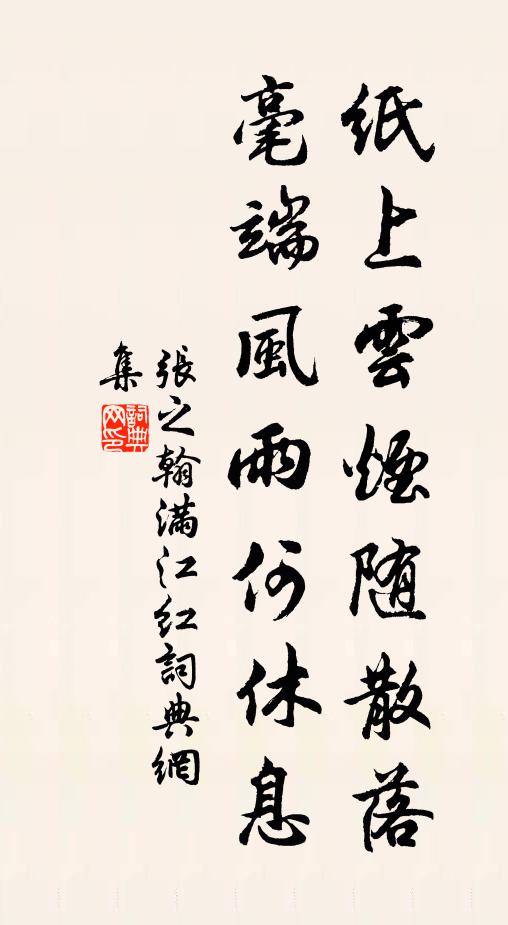 紙上雲煙随散落
毫端風雨何休息
張之翰满江红詞典網
集
詞典网印